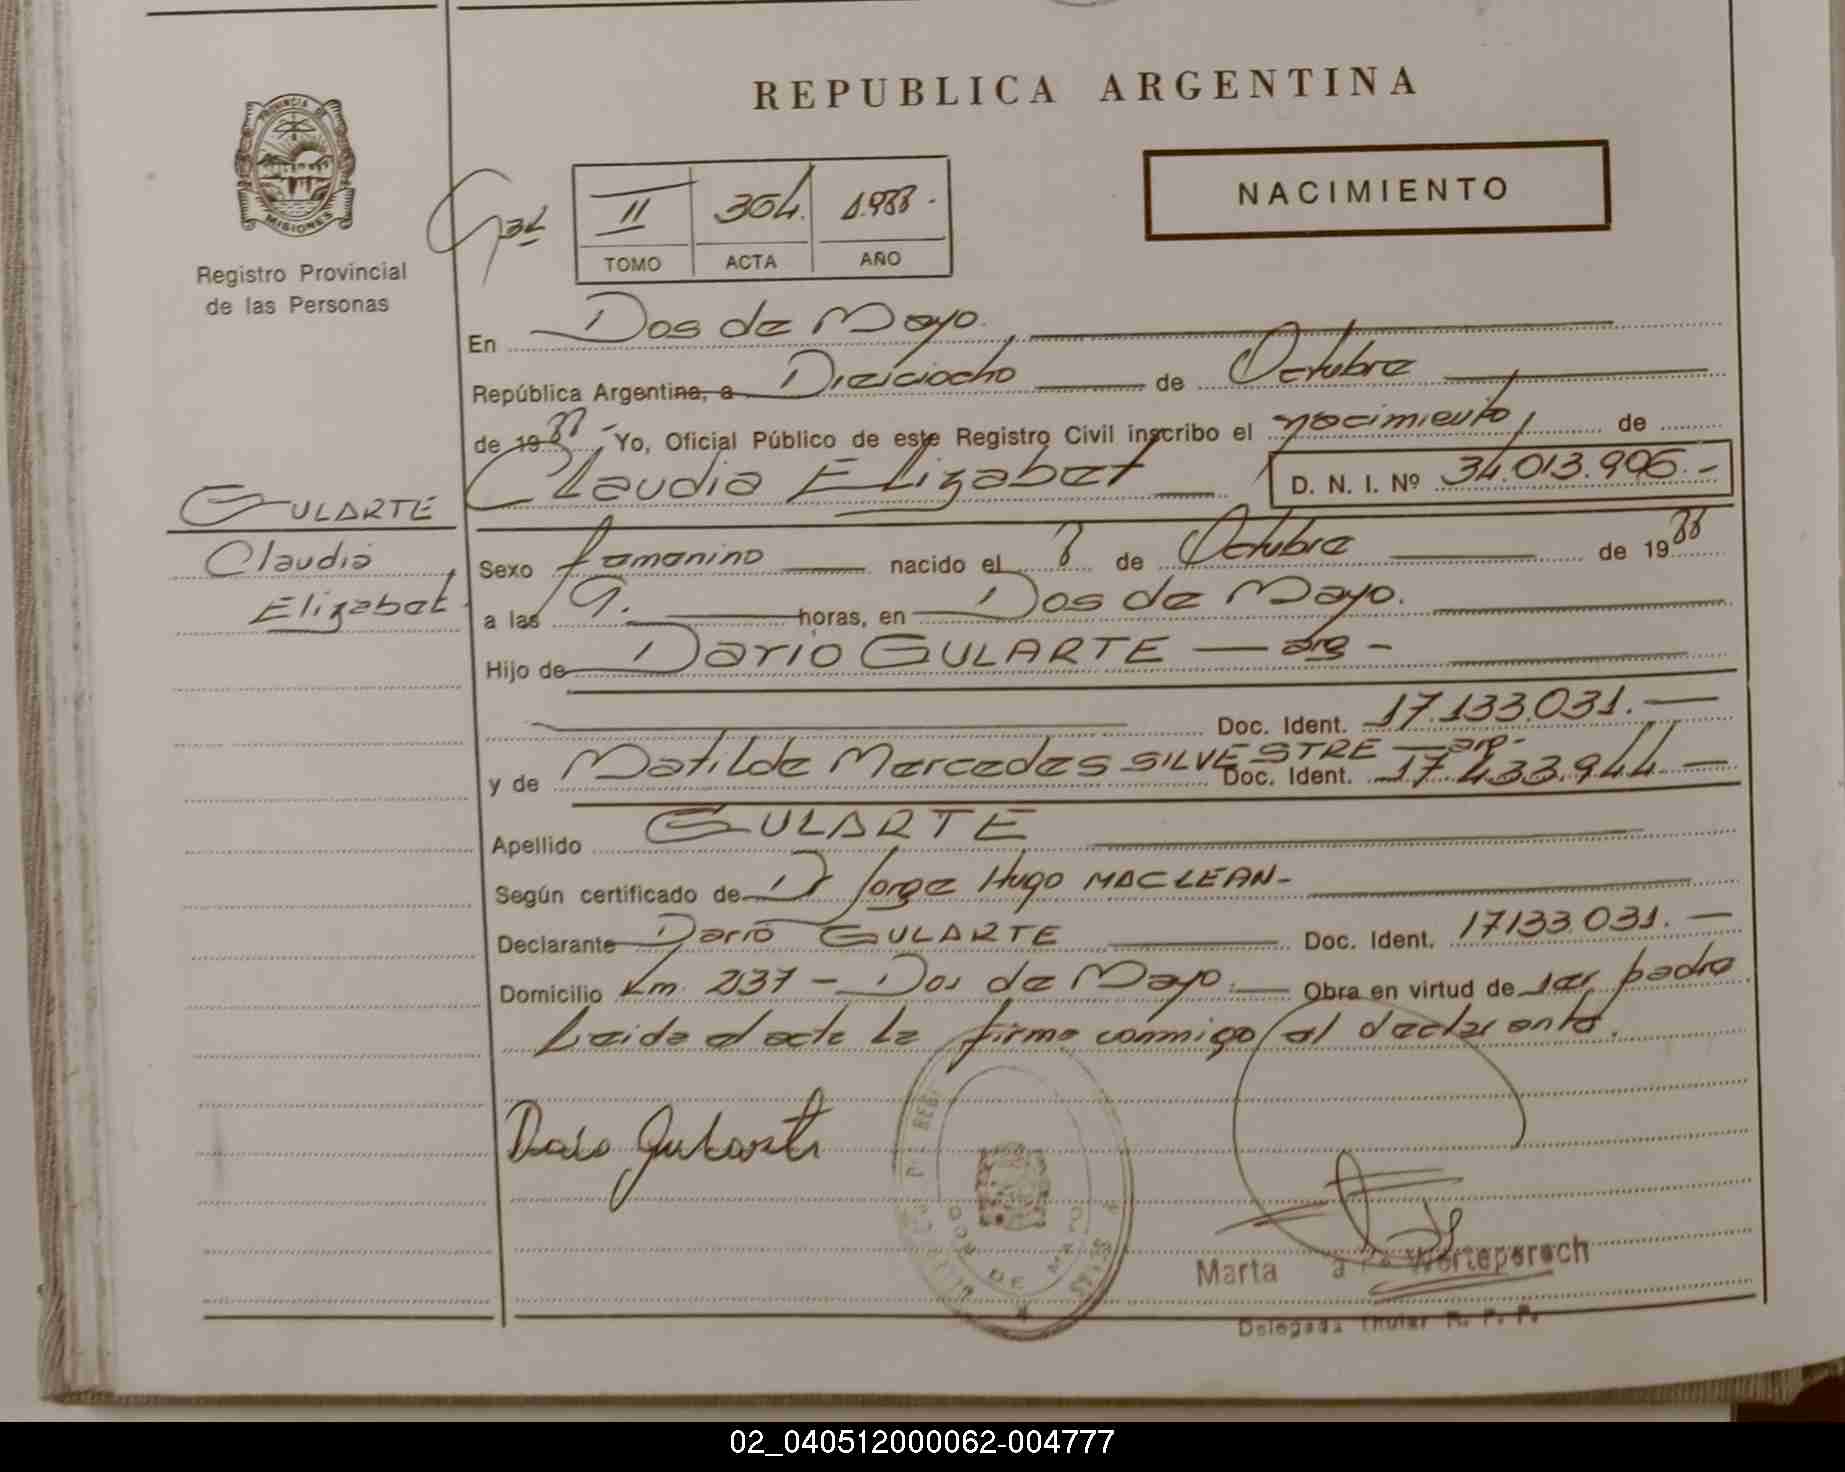 REPUBLICA ARGENTINA
PROVINCIA DE
MISIONES
Registro Provincial
de las Personas
II 304. 1.988.-
TOMO ACTA AÑO
NACIMIENTO
En Dos de Mayo.
República Argentina, a Dieciocho de Octubre
de 1988.- Yo, Oficial Público de este Registro Civil inscribo el nacimiento, de
Claudia Elizabet D. N. I. Nº 34.013.906.-
GULARTE
Claudia
Elizabet.
Sexo femenino nacido el 8 de Octubre de 1988
a las 9. horas, en Dos de Mayo.
Hijo de Dario GULARTE — arg -
Doc. Ident. 17.133.031.—
y de Matilde Mercedes SILVESTRE — arg.-
Doc. Ident. 17.433.944 —
Apellido GULARTE
Según certificado de Dr Jorge Hugo MACLEAN-
Declarante Dario GULARTE Doc. Ident. 17133.031.—
Domicilio Km. 237 - Dos de Mayo. Obra en virtud de ser padre
Leida el acta la firma conmigo el declarante.
Dario Gularte
DOS DE MAYO
Marta Werteperech
Delegada Titular R. P. P.
02_040512000062-004777